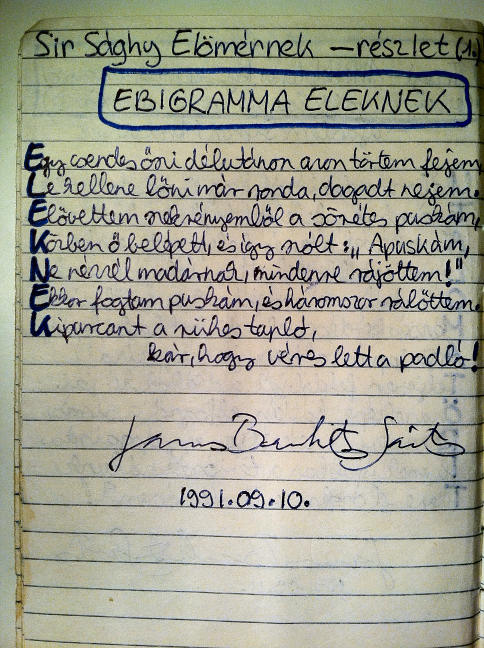 Sir Sághy Elömérnek – részlet (1.)
EBIGRAMMA ELEKNEK
Egy csendes őszi délutánon azon törtem fejem,
Le kellene lőni már ronda, dagadt nejem.
Elővettem szekrényemből a sörétes puskám,
Közben ő belépett, és így szólt: „Apuskám,
Ne nézzél madárnak, mindenre rájöttem!"
Ekkor fogtam puskám, és háromszor rálőttem.
Kipurcant a rühes tapló,
kár, hogy véres lett a padló!
1991.09.10.